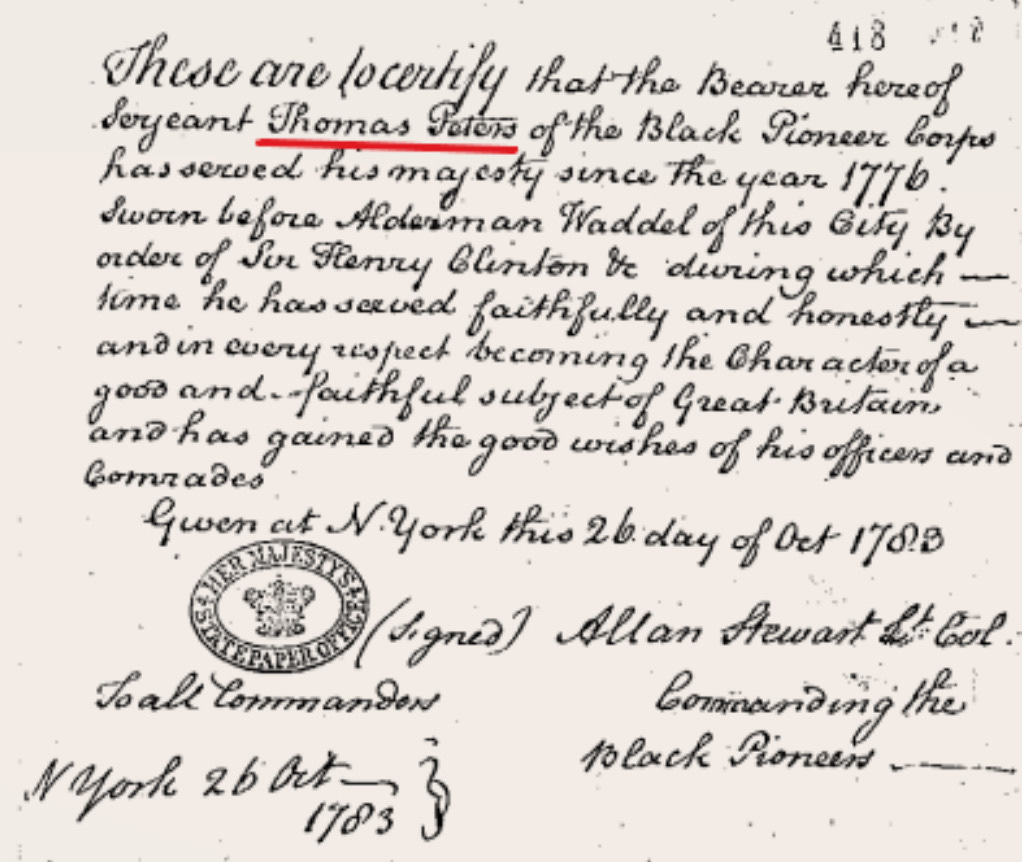 418
These are to certify that the Bearer hereof
Serjeant Thomas Peters of the Black Pioneer Corps
has served his majesty since the year 1776.
Sworn before Alderman Waddel of this City By
order of Sir Henry Clinton &c during which —
time he has served faithfully and honestly —
and in every respect becoming the Character of a
good and faithful subject of Great Britain
and has gained the good wishes of his officers and
Comrades
Given at N. York this 26 day of Oct 1783
HER MAJESTY'S
STATE PAPER OFFICE
(Signed) Allan Stewart Lt Col.
To all Commanders
Commanding the
Black Pioneers —
N York 26 Oct —
1783